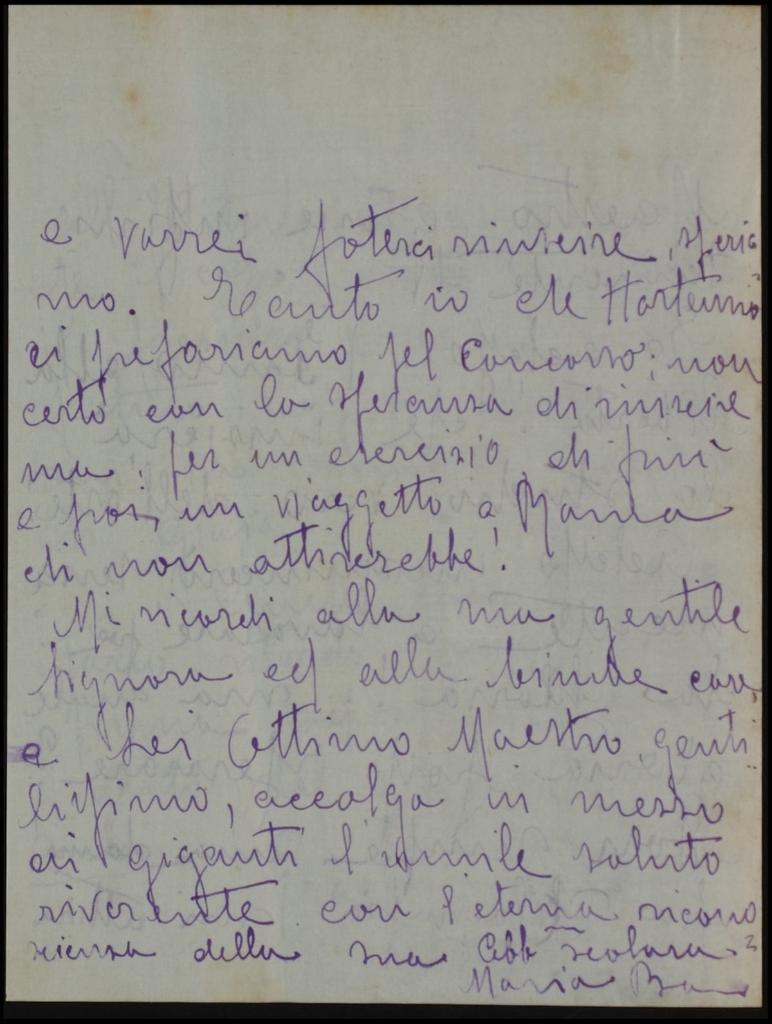 e vorrei poterci riuscire, speria
mo. Tanto io che Hortensio
ci prepariamo pel Concorso; non
certo con la speranza di riuscire
ma per un esercizio di più
e poi, un viaggetto a Roma
chi non attirerebbe!
Mi ricordi alla sua gentile
Signora ed alla bimba cara,
e Lei Ottimo Maestro genti
lissimo, accolga in mezzo
ai giganti l'umile saluto
riverente con l'eterna ricono
scienza della sua Obb scolara
Maria